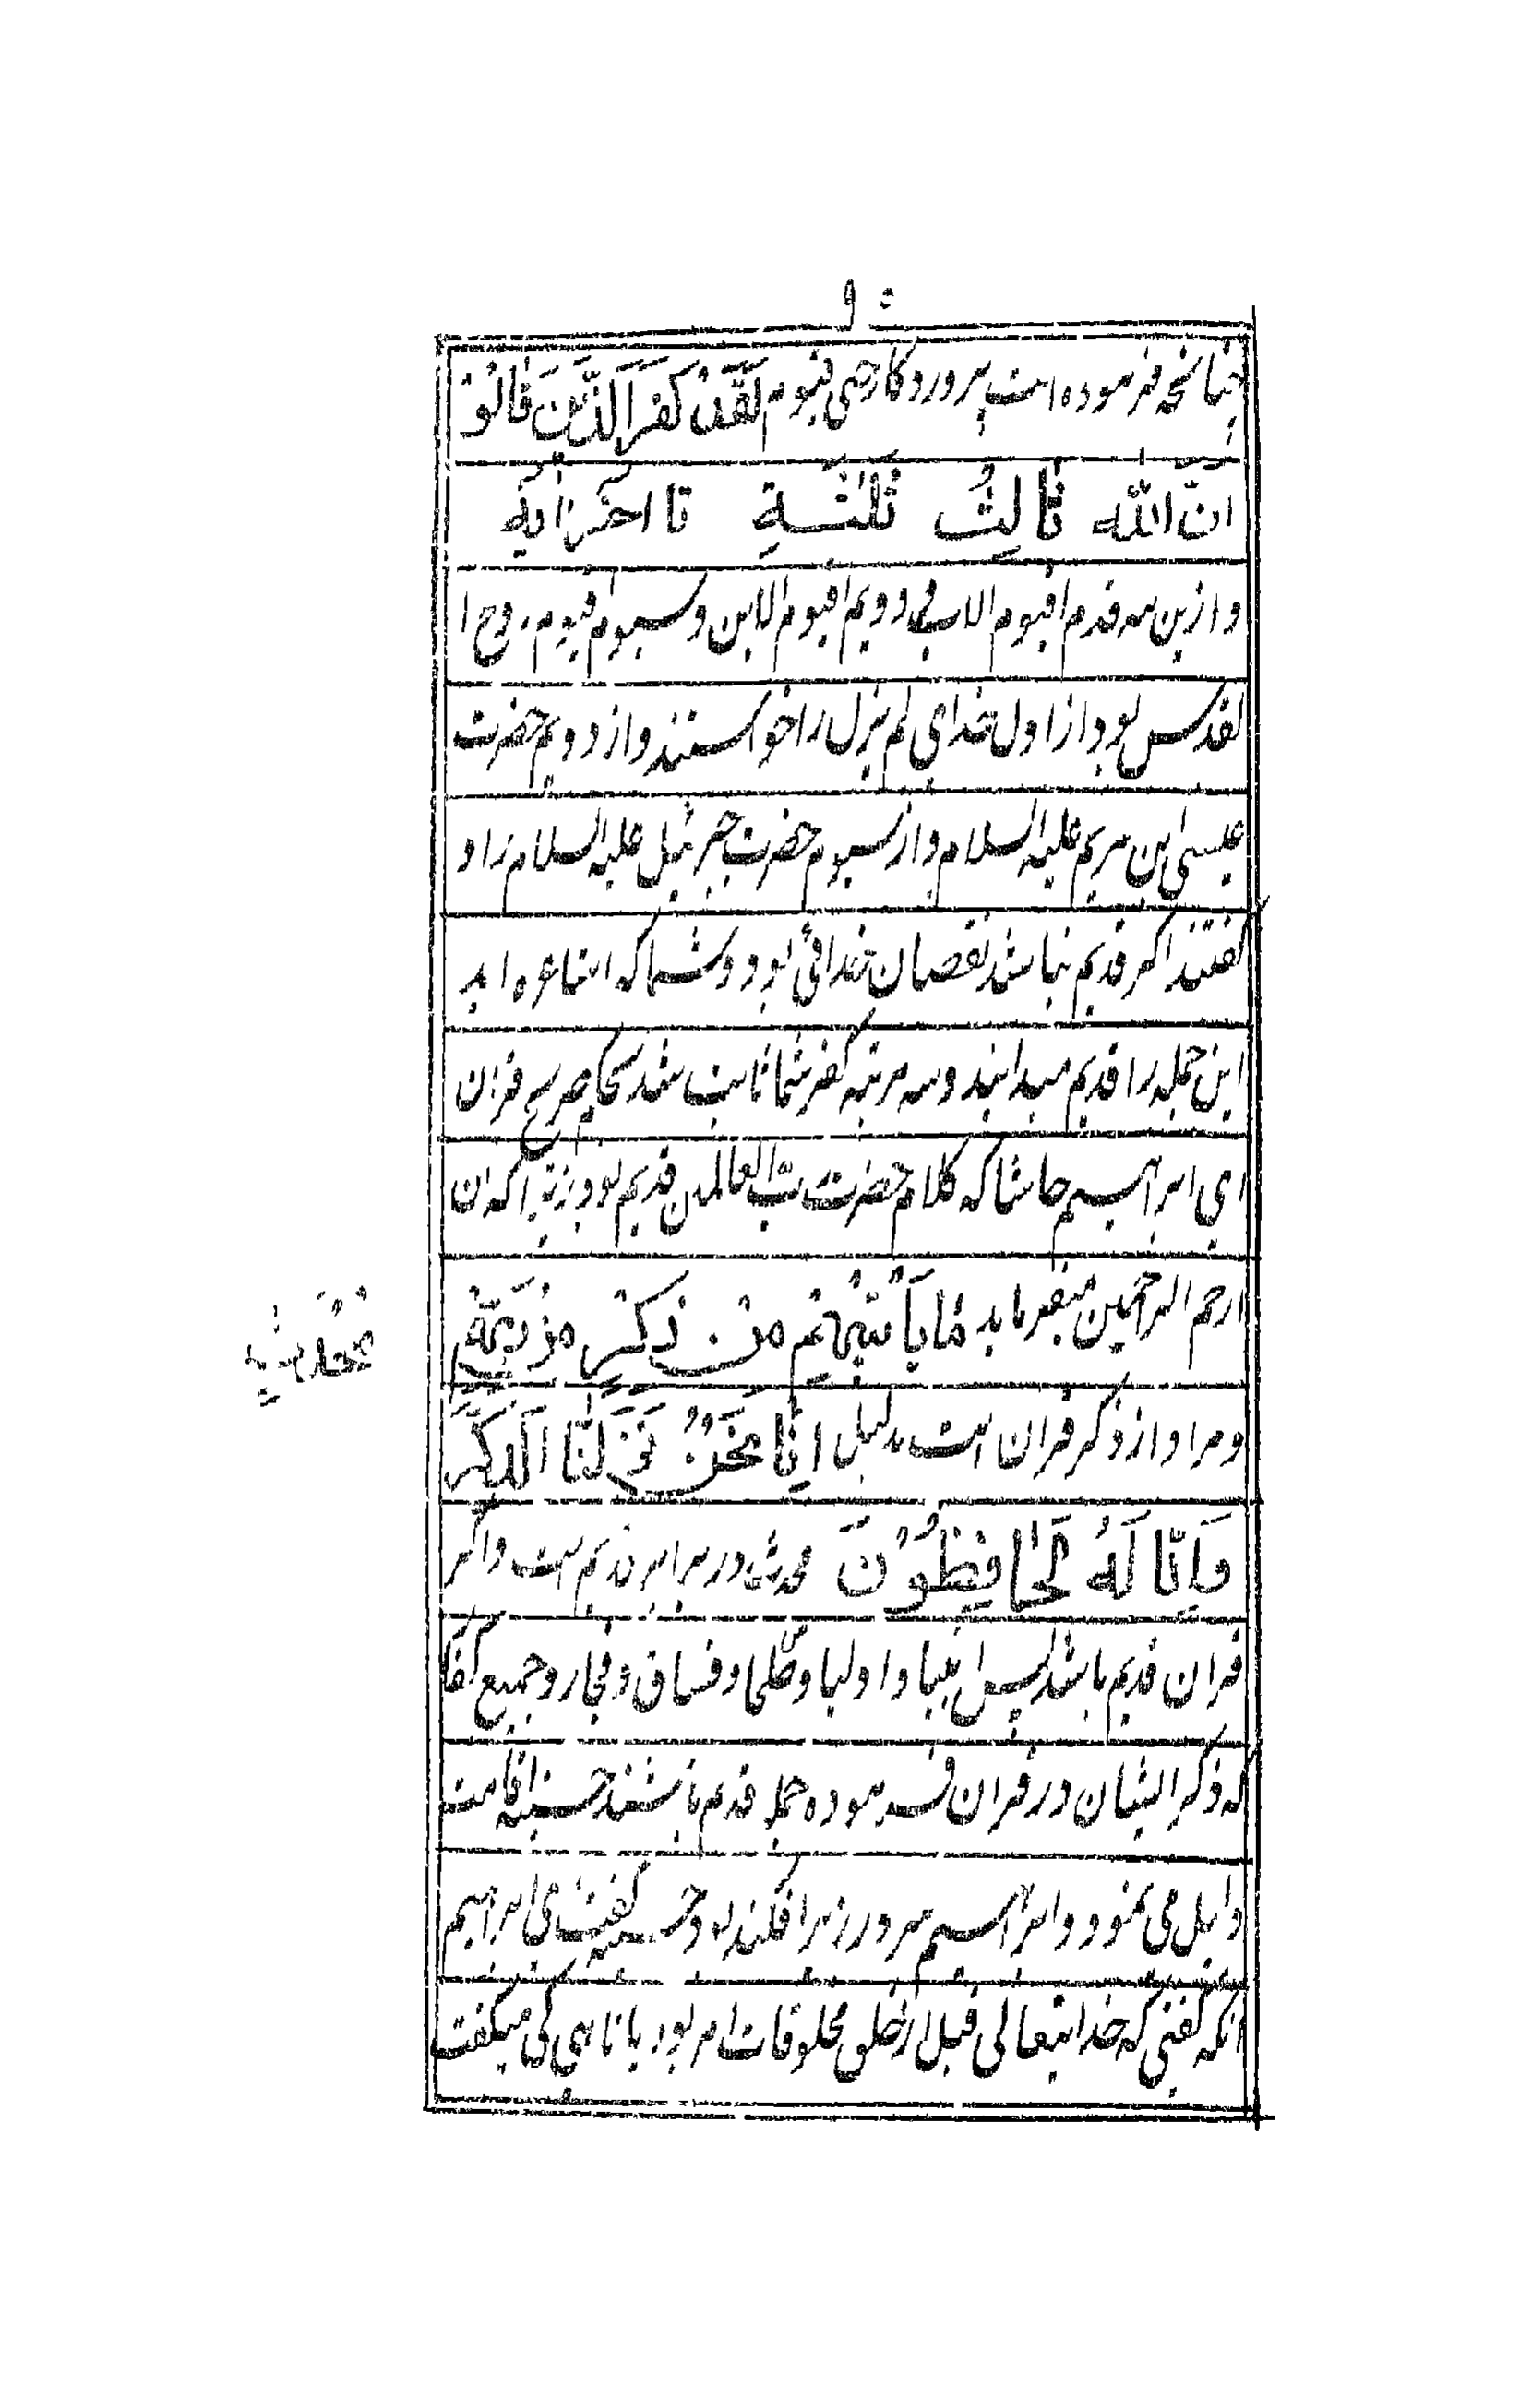 چنانچه فرموده است پروردگار حی قیوم لَقَدْ کَفَرَ الَّذِینَ قَالُوْا
اِنَّ اللّٰه ثَالِثُ ثَلٰثَةٍ تا آخر آیه
و ازین سه قدم اقیوم الاب می دویم اقیوم الابن و سیوم اقیوم روح ا
لقدس بود از اول خدای لم یزل را خواستند و از دویم حضرت
عیسی ابن مریم علیه السلام و از سیوم حضرت جبرئیل علیه السلام را و
گفتند اگر قدیم نباشد نقصان خدائی بود و شما که اشاعره اید
این جمله را قدیم میدانید و سه مرتبه کفر شما ثابت شد بحکم صریح قران
ای ابراهیم حاشا که کلام حضرت ربّ العالمین قدیم بود زیرا که ان
ارحم الراحمین میفرماید مَا یَأْتِیْهِمْ مِنْ ذِکْرٍ مِنْ رَبِّهِمْ
مُحْدَثٍ
و مراد از ذکر قران است بدلیل اِنَّا نَحْنُ نَزَّلْنَا الذِّکْرَ
وَاِنَّا لَهُ لَحَافِظُوْنَ محدث در برابر قدیم است و اگر
قران قدیم باشد پس انبیا و اولیا و صلحا و فساق و فجار و جمیع کفا
که ذکر ایشان در قران فرموده جمله قدیم باشند حسنیه اقامت
دلیل می نمود و ابراهیم سر در زیر افکنده بود حسنیه گفت ای ابراهیم
انکه گفتی که خدایتعالی قبل از خلق مخلوقات امر بود یا ناهی کی میگفت